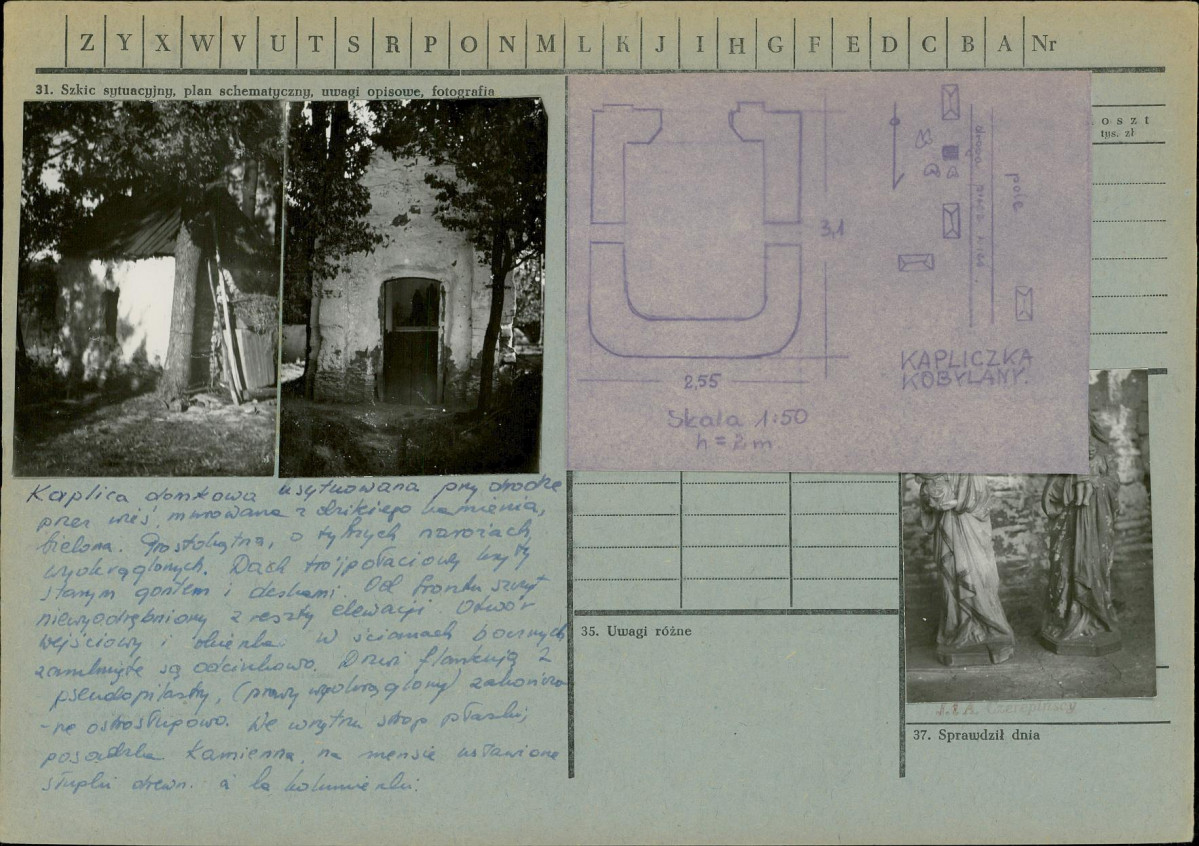 Z Y X W V U T S R P O N M L K J I H G F E D C B A Nr
31. Szkic sytuacyjny, plan schematyczny, uwagi opisowe, fotografia
oszt
tys. zł
3,1
2,55
Skala 1:50
h = 2 m
droga przez wieś
pole
KAPLICZKA
KOBYLANY.
Kaplica domkowa usytuowana przy drodze
przez wieś, murowana z dzikiego kamienia,
bielona. Prostokątna, o tylnych narożach
wyokrąglonych. Dach trójpołaciowy kryty
starym gontem i deskami. Od frontu szczyt
niewyodrębniony z reszty elewacji. Otwór
wejściowy i okienka w ścianach bocznych
zamknięte są odcinkowo. Drzwi flankują 2
pseudopilastry, (prawy wyokrąglony) zakończo
-ne ostrosłupowo. We wnętrzu strop płaski,
posadzka kamienna, na mensie ustawione
słupki drewn. à la kolumienki.
35. Uwagi różne
J. i A. Czerepińscy
37. Sprawdził dnia